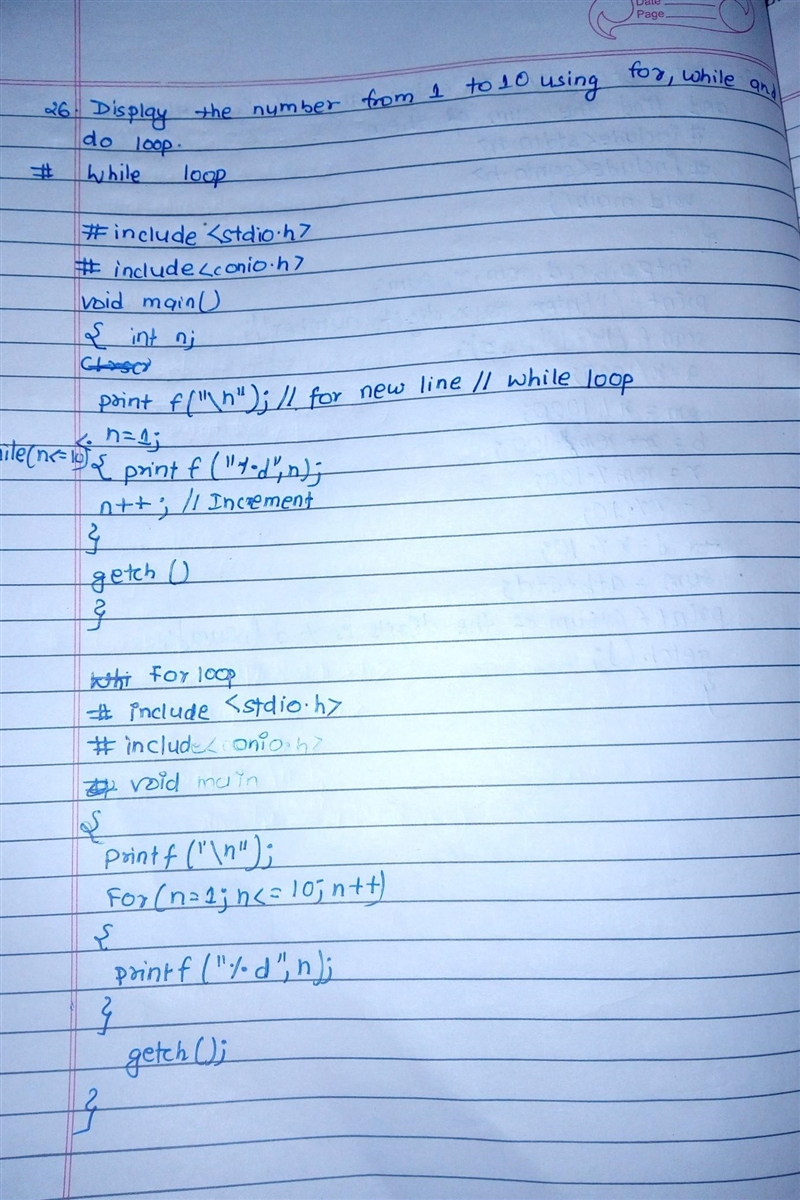 Date
Page
26. Display the number from 1 to 10 using for, while and
do loop.
# While loop
#include <stdio.h>
# include<conio.h>
void main()
{ int n;
print f("\n"); // for new line // while loop
n=1;
ile(n<=10) { print f ("%d",n);
n++ ; // Increment
}
getch ()
}
For loop
# include <stdio.h>
# include<conio.h>
void main
{
printf ("\n");
For(n=1; n<=10; n++)
{
printf ("%d", n);
}
getch();
}